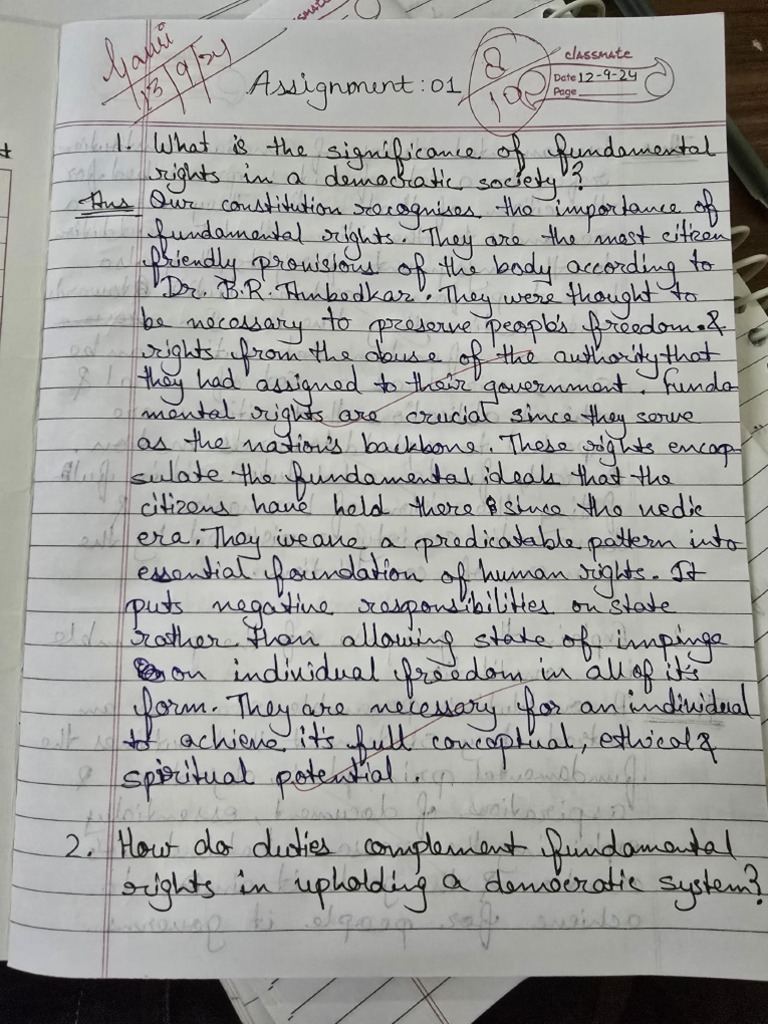 Gauri
13/9/24
Assignment: 01
8/10
classmate
Date 12-9-24
Page
1. What is the significance of fundamental
rights in a democratic society?
Ans Our constitution recognises the importance of
fundamental rights. They are the most citizen
friendly provisions of the body according to
Dr. B.R. Ambedkar. They were thought to
be necessary to preserve people's freedom &
rights from the abuse of the authority that
they had assigned to their government. Funda
mental rights are crucial since they serve
as the nation's backbone. These rights encap-
sulate the fundamental ideals that the
citizens have held there since the vedic
era. They weave a predicatable pattern into
essential foundation of human rights. It
puts negative responsibilities on state
rather than allowing state of impinge
on individual freedom in all of it's
form. They are necessary for an individual
to achieve it's full conceptual, esthical &
spiritual potential.
2. How do duties complement fundamental
rights in upholding a democratic system?